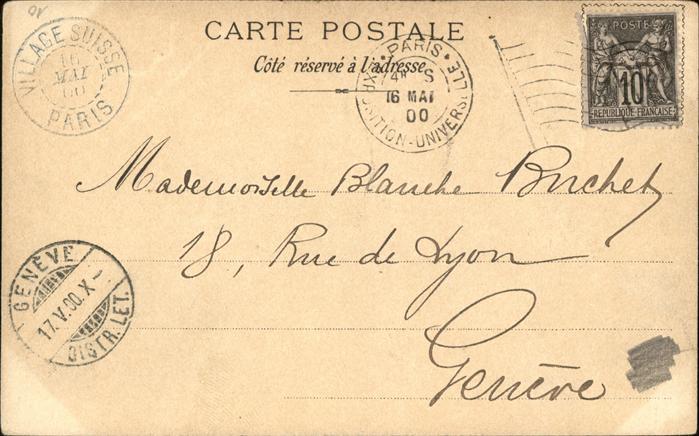 CARTE POSTALE
Côté réservé à l'adresse
VILLAGE SUISSE
16
MAI
00
PARIS
PARIS
EXPOSITION-UNIVERSELLE
4E S
16 MAI
00
POSTES
10
REPUBLIQUE FRANÇAISE
Mademoiselle Blanche Buchet
18, Rue de Lyon
Genève
GENÈVE
17.V.00.X-
DISTR. LET.